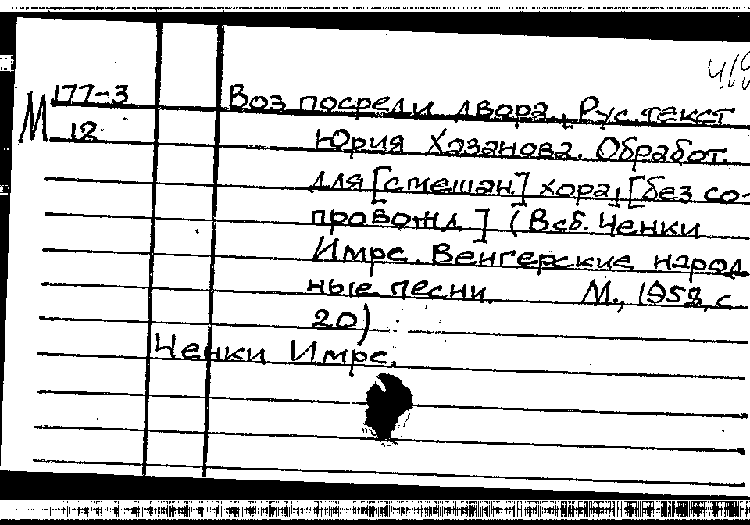 М 177-3
18
Воз посреди двора. Рус. текст
Юрия Хазанова. Обработ.
для [смешан.] хора, [без со-
провожд.] (В сб. Ченки
Имре. Венгерские народ
ные песни. М., 1958, с.
20)
Ченки Имре.